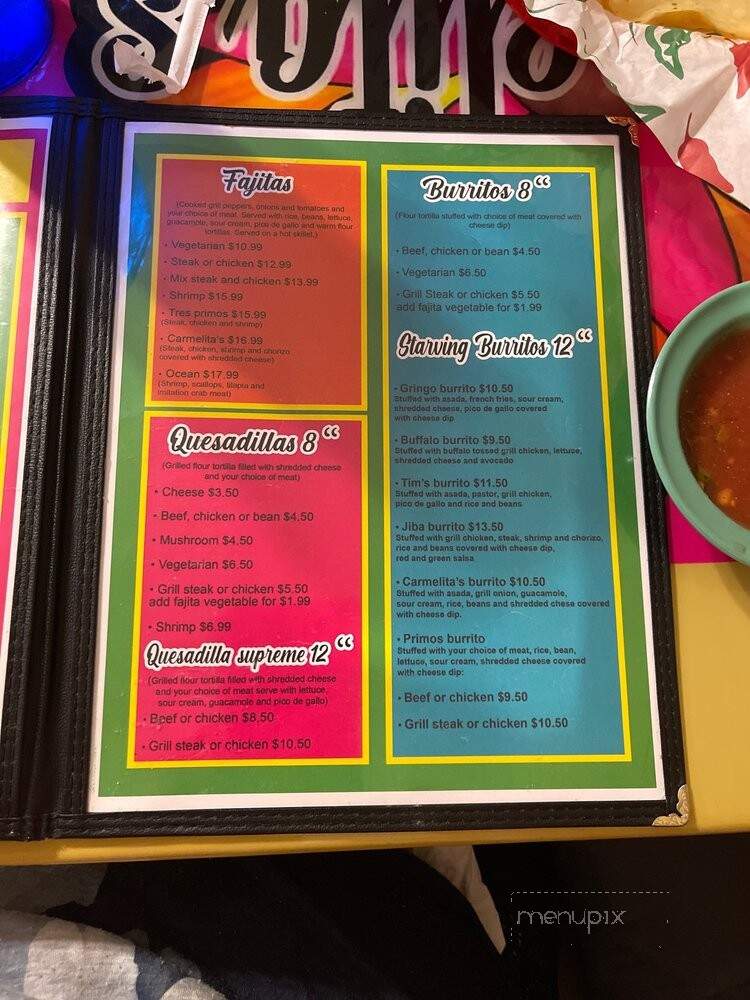 Fajitas
(Cooked grill peppers, onions and tomatoes and
your choice of meat. Served with rice, beans, lettuce,
guacamole, sour cream, pico de gallo and warm flour
tortillas. Served on a hot skillet.)
· Vegetarian $10.99
· Steak or chicken $12.99
· Mix steak and chicken $13.99
· Shrimp $15.99
· Tres primos $15.99
(Steak, chicken and shrimp)
· Carmelita's $16.99
(Steak, chicken, shrimp and chorizo
covered with shredded cheese)
· Ocean $17.99
(Shrimp, scallops, tilapia and
imitation crab meat)
Quesadillas 8“
(Grilled flour tortilla filled with shredded cheese
and your choice of meat)
· Cheese $3.50
· Beef, chicken or bean $4.50
· Mushroom $4.50
· Vegetarian $6.50
· Grill steak or chicken $5.50
add fajita vegetable for $1.99
· Shrimp $6.99
Quesadilla supreme 12“
(Grilled flour tortilla filled with shredded cheese
and your choice of meat serve with lettuce,
sour cream, guacamole and pico de gallo)
· Beef or chicken $8.50
· Grill steak or chicken $10.50
Burritos 8“
(Flour tortilla stuffed with choice of meat covered with
cheese dip)
· Beef, chicken or bean $4.50
· Vegetarian $6.50
· Grill Steak or chicken $5.50
add fajita vegetable for $1.99
Starving Burritos 12“
· Gringo burrito $10.50
Stuffed with asada, french fries, sour cream,
shredded cheese, pico de gallo covered
with cheese dip
· Buffalo burrito $9.50
Stuffed with buffalo tossed grill chicken, lettuce,
shredded cheese and avocado
· Tim's burrito $11.50
Stuffed with asada, pastor, grill chicken,
pico de gallo and rice and beans
· Jiba burrito $13.50
Stuffed with grill chicken, steak, shrimp and chorizo,
rice and beans covered with cheese dip,
red and green salsa
· Carmelita's burrito $10.50
Stuffed with asada, grill onion, guacamole,
sour cream, rice, beans and shredded chese covered
with cheese dip.
· Primos burrito
Stuffed with your choice of meat, rice, bean,
lettuce, sour cream, shredded cheese covered
with cheese dip:
· Beef or chicken $9.50
· Grill steak or chicken $10.50
menupix